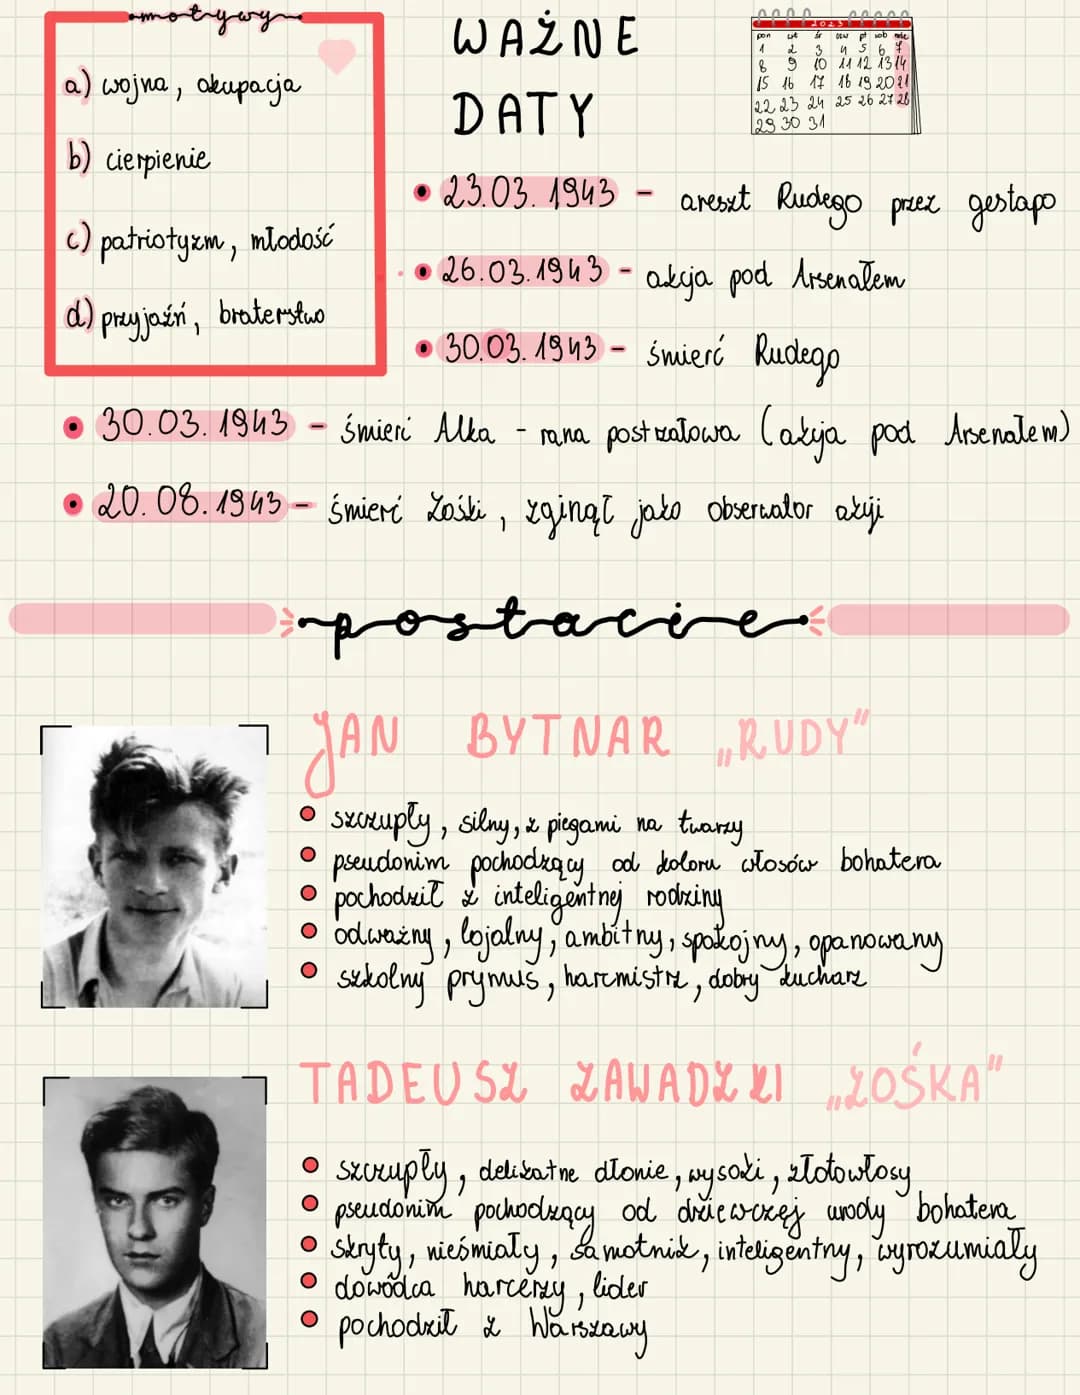 motywy
a) wojna, okupacja
b) cierpienie
c) patriotyzm, młodość
d) przyjaźń, braterstwo
WAŻNE
DATY
2023
pon wt śr czw pt sob ndz
1 2 3 4 5 6 7
8 9 10 11 12 13 14
15 16 17 18 19 20 21
22 23 24 25 26 27 28
29 30 31
• 23.03.1943 - areszt Rudego przez gestapo
• 26.03.1943 - akcja pod Arsenałem
• 30.03.1943 - śmierć Rudego
• 30.03.1943 - śmierć Alka - rana postrzałowa (akcja pod Arsenałem)
• 20.08.1943 - śmierć Zośki, zginął jako obserwator akcji
postacie
JAN BYTNAR „RUDY"
• szczupły, silny, z piegami na twarzy
• pseudonim pochodzący od koloru włosów bohatera
• pochodził z inteligentnej rodziny
• odważny, lojalny, ambitny, spokojny, opanowany
• szkolny prymus, harcmistrz, dobry kucharz
TADEUSZ ZAWADZKI „ZOŚKA"
• szczupły, delikatne dłonie, wysoki, złotowłosy
• pseudonim pochodzący od dziewczęj urody bohatera
• skryty, nieśmiały, samotnik, inteligentny, wyrozumiały
• dowódca harcerzy, lider
• pochodził z Warszawy